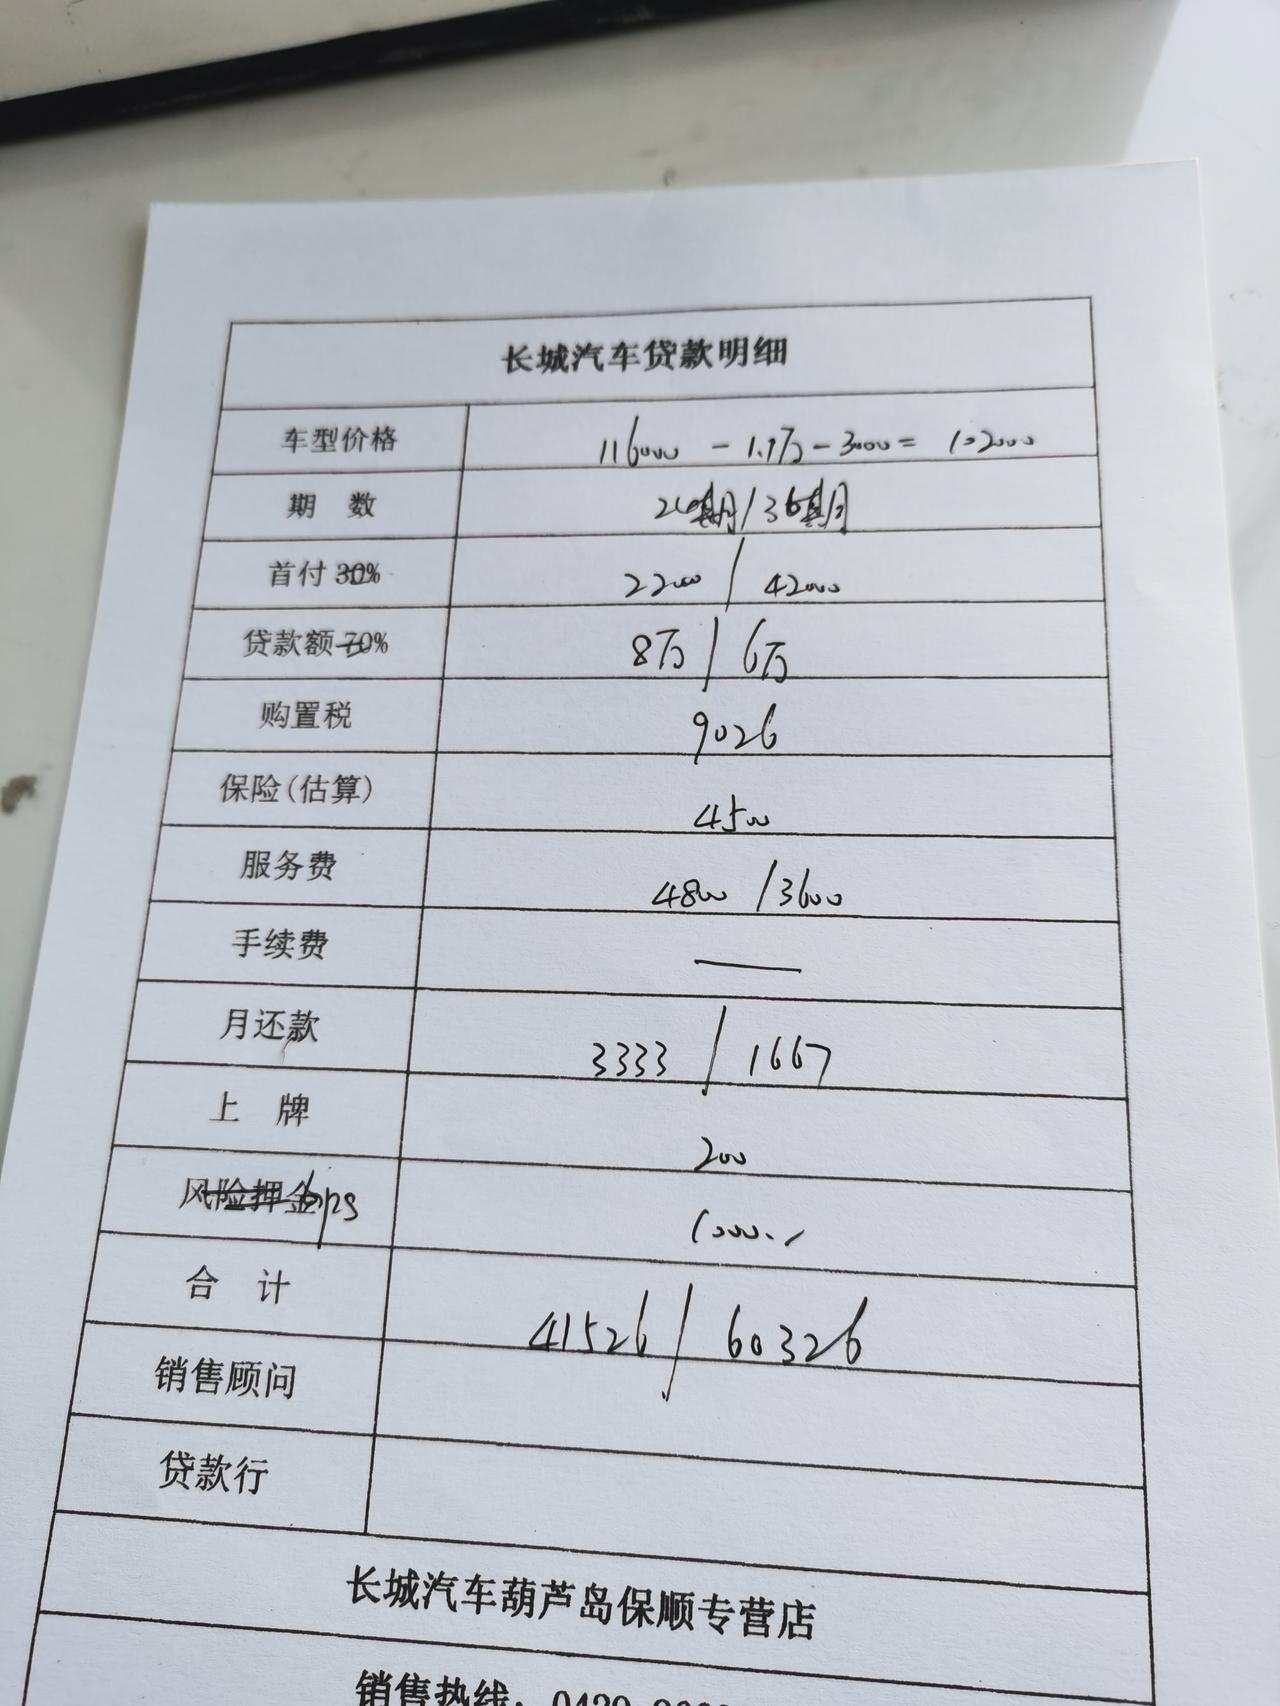 长城汽车贷款明细
车型价格 116000 - 1.1万 - 3000 = 102000
期 数 24期/36期
首付30% 22000 / 42000
贷款额70% 8万 / 6万
购置税 9026
保险(估算) 4500
服务费 4800 / 3600
手续费 —
月还款 3333 / 1667
上 牌 200
风险押金 gps 1000
合 计 41526 / 60326
销售顾问
贷款行
长城汽车葫芦岛保顺专营店
销售热线: 0429